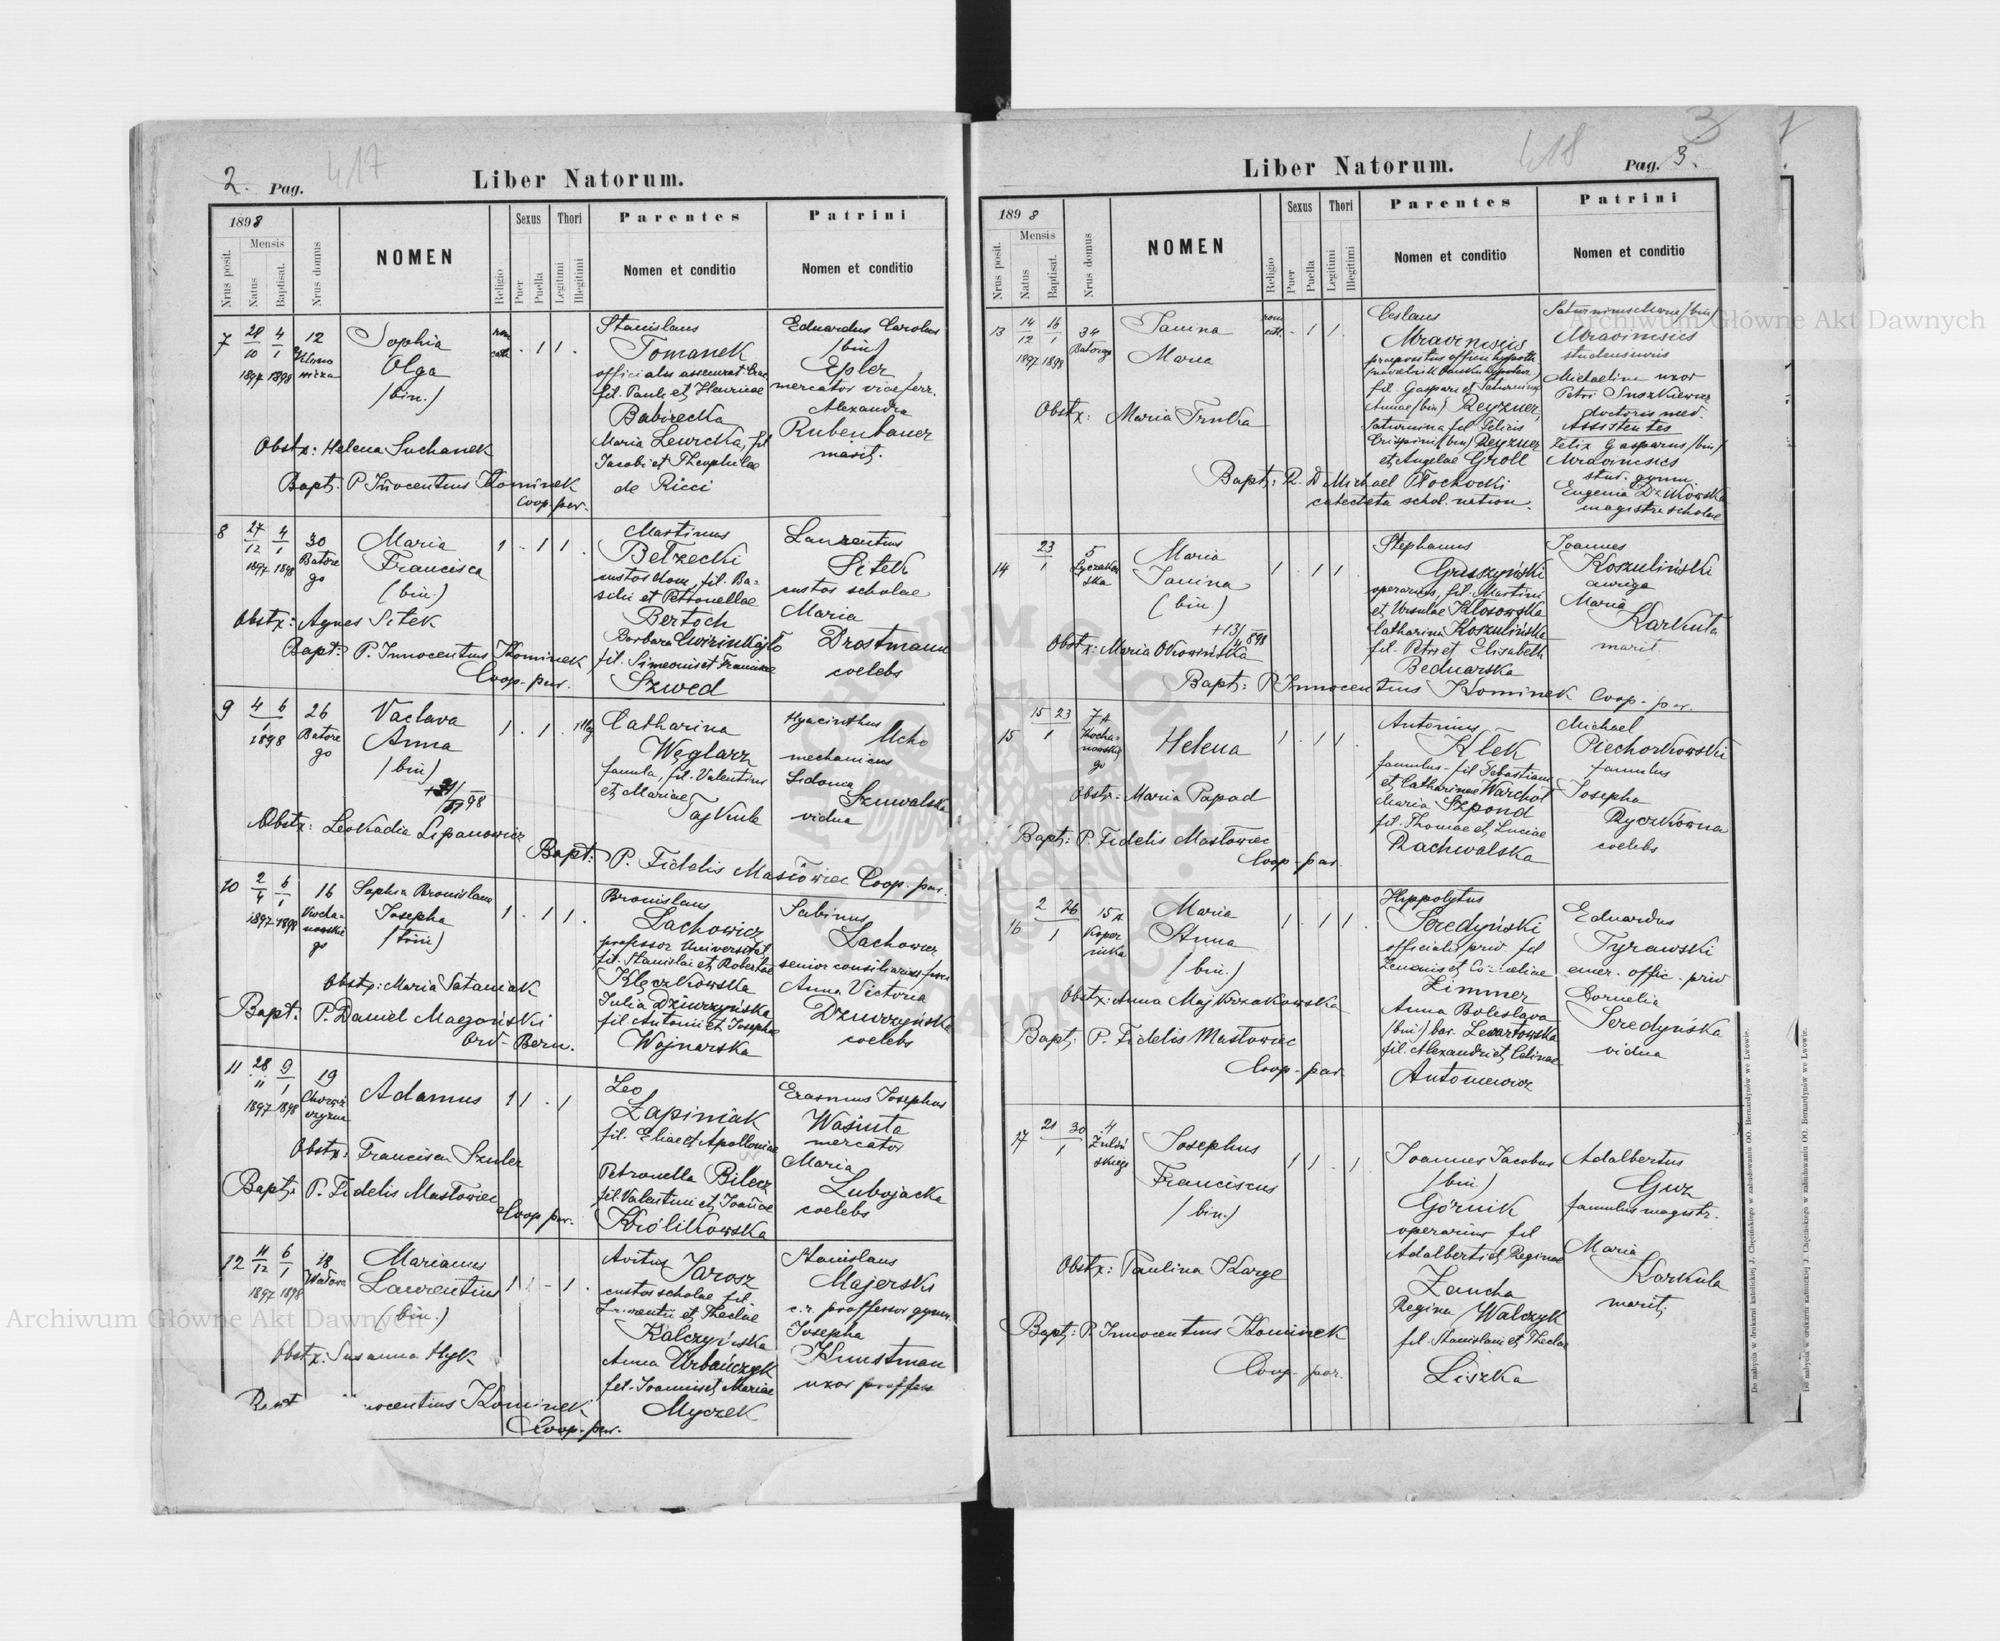 2. Pag. 417
Liber Natorum.
1898
Nrus posit.
Mensis
Natus
Baptisat.
Nrus domus
NOMEN
Religio
Sexus
Puer
Puella
Thori
Legitimi
Illegitimi
Parentes
Nomen et conditio
Patrini
Nomen et conditio
7 28/10 1897 4/1 1898 12
Sophia
Olga
(bin.)
rom. cath.
Stanislaus
Tomanek
fil. Pauli et Henricae
Babirecka
Maria Lewicka, fil.
Jacobi et Theophilae
de Ricci
Eduardus Carolus
(bin)
Epler
mercator
Alexandra
Rubenbauer
marit.
Obstx: Helena Suchanek
Bapt: P. Innocentius Kominek
Coop. par.
8 27/12 1897 4/1 1898 30
Batorego
Maria
Francisca
(bin.)
Martinus
Betzecki
custos dom., fil. Ba-
silii et Petronellae
Bertoch
Barbara
fil. Simeonis et Franciscae
Szwed
Laurentius
Sitek
custos scholae
Maria
Drostmann
coelebs
Obstx: Agnes Sitek
Bapt: P. Innocentius Kominek
Coop. par.
9 4 6/1 1898 26
Batorego
Vaclava
Anna
(bin)
illeg
Catharina
Węglarz
famula, fil. Valentini
et Mariae
Tajkule
Hyacinthus
Ucho
mechanicus
Sidonia
Szuwalska
vidua
Obstx: Leokadia Lipanowicz
Bapt: P. Fidelis Masłowiec Coop. par.
10 2/4 1897 6/1 1898 16
Kochanowskiego
Sophia Bronislava
Josepha
(trin)
Bronislaus
Lachowicz
professor Universitat.
fil. Stanislai et Robertae
Kleczkowska
Julia Dziurzyńska
fil. Antonii et Josephae
Wojnarska
Sabinus
Lachowicz
senior consiliarius
Anna Victoria
Dziurzyńska
coelebs
Obstx: Maria Sataniak
Bapt: P. Daniel Magoński
Ord. Bern.
11 28/11 1897 9/1 1898 19
Adamus
Leo
Łapiniak
fil. Eliae et Apolloniae
Petronella Bilecz
fil. Valentini et Joannae
Królikowska
Erasmus Josephus
Wasiuta
mercator
Maria
Lubojacka
coelebs
Obstx: Francisca Szuler
Bapt: P. Fidelis Masłowiec
Coop. par.
12 11/12 1897 6/1 1898 18
Wałowa
Marianus
Laurentius
(bin.)
Avitus
Jarosz
custos scholae fil.
et Theclae
Kalczyńska
Anna Urbańczyk
fil. Joannis et Mariae
Myczek
Stanislaus
Majerski
c. r. proffessor gymn.
Josepha
Kunstman
uxor proffess
Obstx: Susanna Hyk
Innocentius Kominek
Coop. par.
418 Pag. 3.
Liber Natorum.
1898
Nrus posit.
Mensis
Natus
Baptisat.
Nrus domus
NOMEN
Religio
Sexus
Puer
Puella
Thori
Legitimi
Illegitimi
Parentes
Nomen et conditio
Patrini
Nomen et conditio
13 14/12 1897 16/1 1898 34
Batorego
Janina
Maria
rom. cath.
Ceslaus
Mravincsics
praepositus officii hypoth.
fil. Gaspari et Saturninae
Annae (bin) Reyzner,
Saturnina fil. Felicis
Crispini (bin) Reyzner
et Angelae Groll
Mravincsics
Michaelina uxor
Petri Suszkiewicz
doctoris med.
Assistentes
Felix Gasparus (bin)
Mravincsics
stud. gymn.
Eugenia Dzikowska
magistra scholae
Obstx: Maria Trnka
Bapt: R. D. Michael Płochocki
catecheta schol. nation.
14 23/1 5
Łyczakowska
Maria
Janina
(bin)
Stephanus
Gruszyński
operarius, fil. Martini
et Ursulae Kłosowska
Catharina Koszulińska
fil. Petri et Elisabeth
Bednarska
Joannes
Koszuliński
auriga
Maria
Karkuta
marit.
Obstx: Maria Okowińska
Bapt: P. Innocentius Kominek Coop. par.
15 15 23/1 7A
Kochanowskiego
Helena
Antonius
Klek
famulus - fil. Sebastiani
et Catharinae Warchoł
Maria Szpond
fil. Thomae et Luciae
Rachwalska
Michael
Piechorkowski
famulus
Josepha
Ryczkówna
coelebs
Obstx: Maria Papad
Bapt: P. Fidelis Masłowiec
Coop. par.
16 2 26/1 15A
Kopernika
Maria
Anna
(bin.)
Hippolytus
Seredyński
officialis priv. fil.
Zenonis et Corneliae
Zimmer
Anna Boleslava
(bin) bar. Lewartowska
fil. Alexandri et Celinae
Antoniewicz
Eduardus
Tyrawski
emer. offic. priv
Cornelia
Seredyńska
vidua
Obstx: Anna Majkrzakowska
Bapt: P. Fidelis Masłowiec
Coop. par.
17 21 30/1 4
Josephus
Franciscus
(bin.)
Joannes Jacobus
(bin)
Górnik
operarius fil
Adalberti et Reginae
Zaucha
Regina Walczyk
fil. Stanislai et Theclae
Liszka
Adalbertus
Guz
famulus magistr.
Maria
Karkula
marit.
Obstx: Paulina Karge
Bapt: P. Innocentius Kominek
Coop. par.
Do nabycia w drukarni katolickiej J. Chęcińskiego w zabudowaniu OO. Bernardynów we Lwowie.
Do nabycia w drukarni katolickiej J. Chęcińskiego w zabudowaniu OO. Bernardynów we Lwowie.
Archiwum Główne Akt Dawnych
Archiwum Główne Akt Dawnych